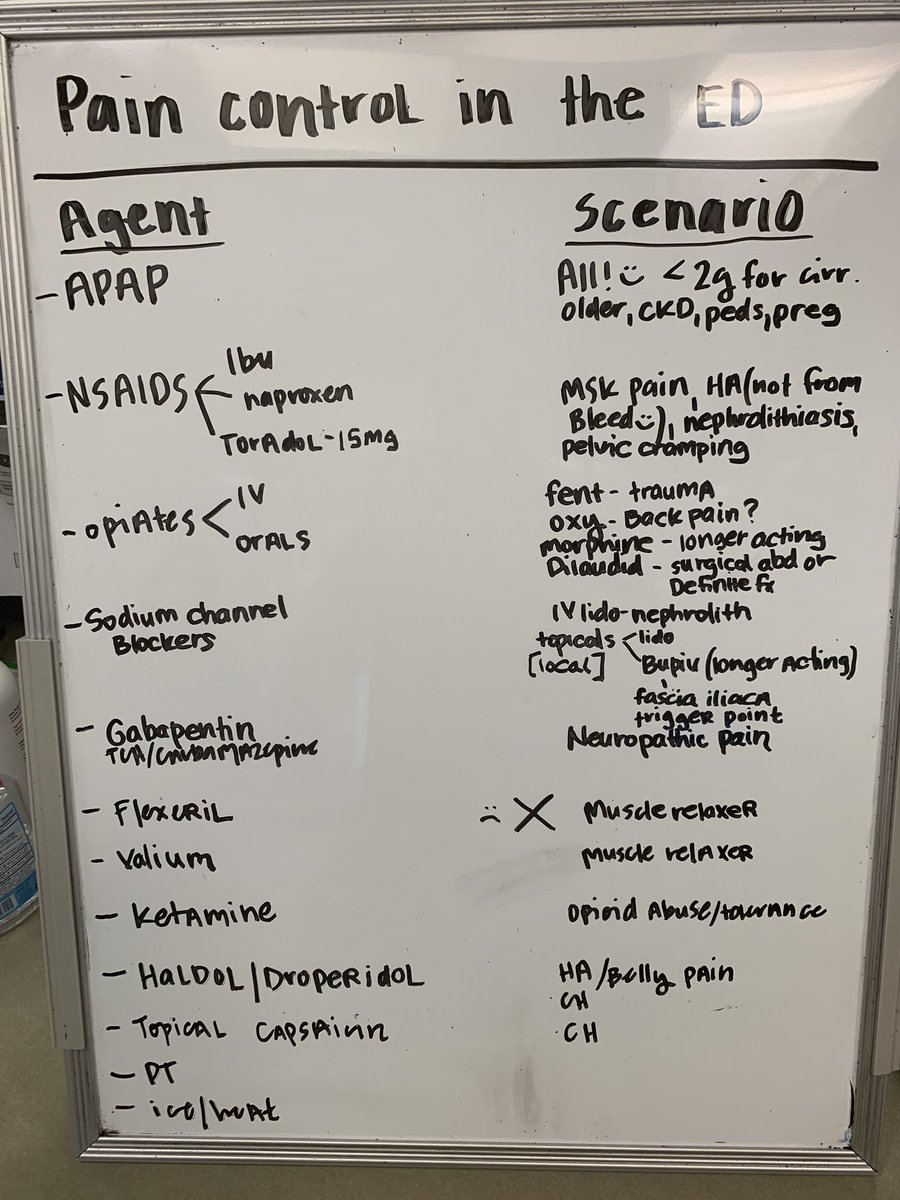 Pain control in the ED
Agent
Scenario
- APAP
All! :) < 2g for cirr.
older, CKD, peds, preg
- NSAIDS
Ibu
naproxen
Toradol - 15mg
MSK pain, HA (not from
Bleed :)), nephrolithiasis,
pelvic cramping
- opiates
IV
orals
fent - trauma
oxy - Back pain?
morphine - longer acting
Dilaudid - surgical abd or
Definite fx
- Sodium channel
Blockers
IV lido - nephrolith
topicals
[local]
lido
Bupiv (longer Acting)
fascia iliaca
trigger point
- Gabapentin
TCA/carbamazepine
Neuropathic pain
- Flexeril
:( X Muscle relaxer
- Valium
muscle relaxer
- Ketamine
opioid Abuse/tolerance
- Haldol/Droperidol
HA/Belly pain
CH
- Topical capsaicin
CH
- PT
- ice/heat